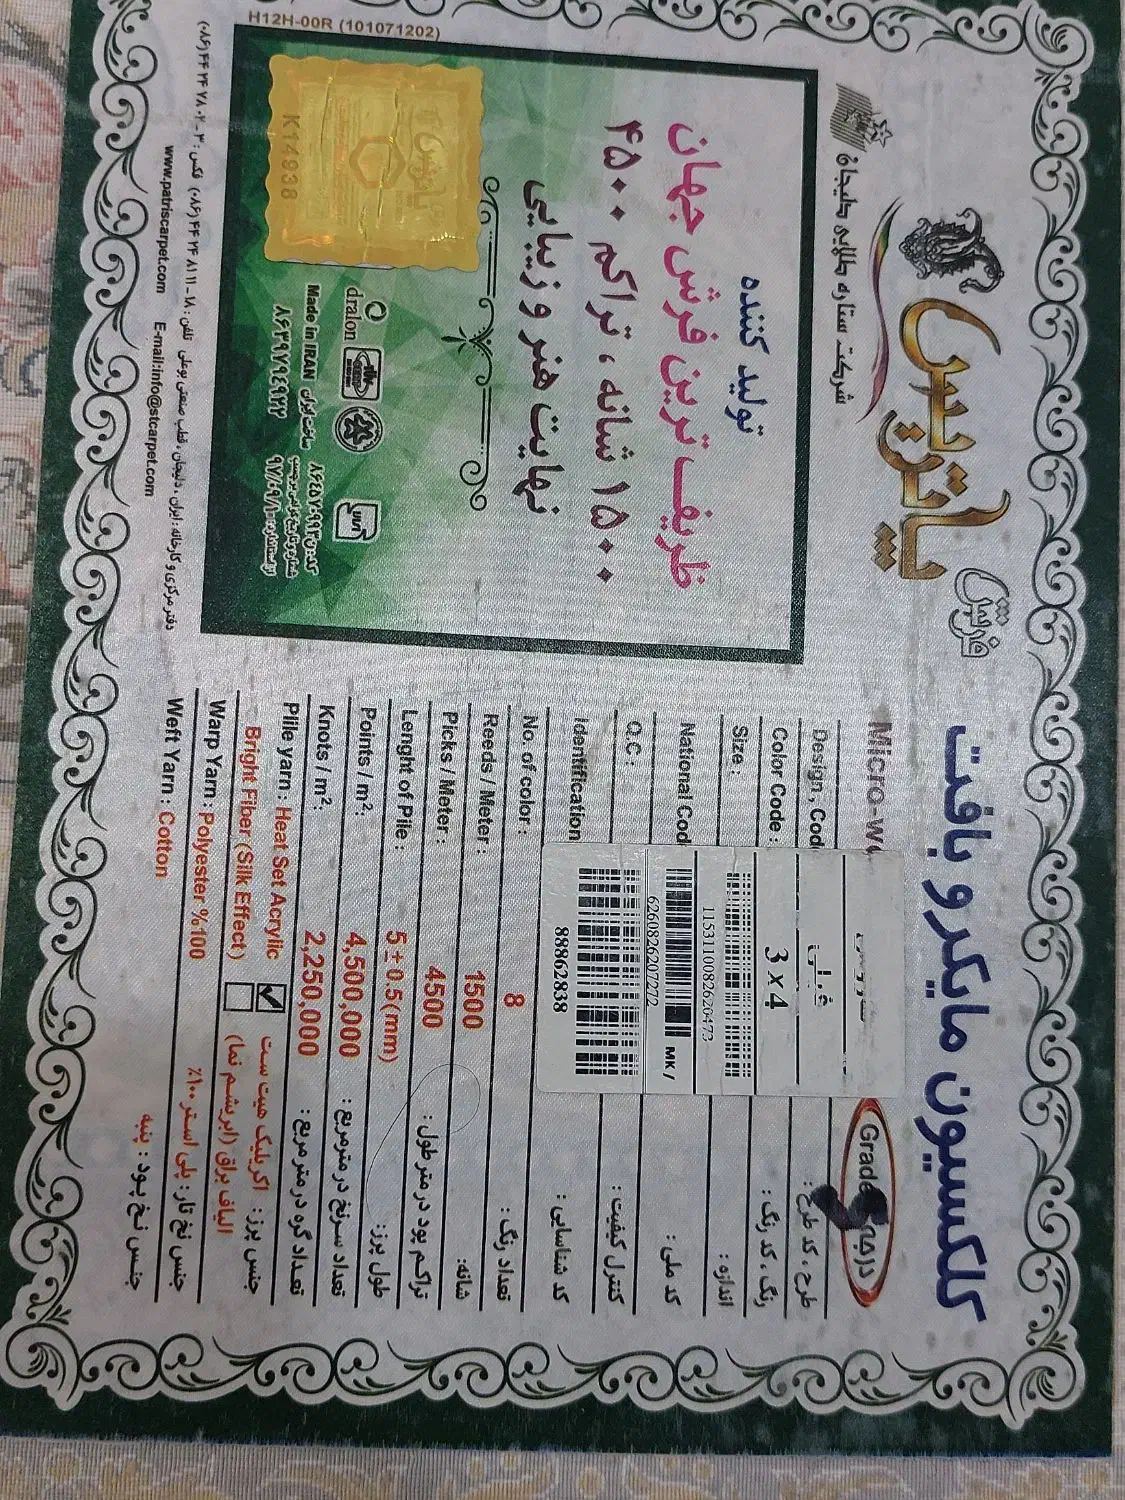 فرش
پاتریس
شرکت ستاره طلایی دلیجان
تولید کننده
ظریف ترین فرش جهان
۱۵۰۰ شانه ، تراکم ۴۵۰۰
نهایت هنر و زیبایی
K14938
dralon
Made in IRAN ساخت ایران
H12H-00R (101071202)
www.patriscarpet.com E-mail:info@stcarpet.com
کلکسیون مایکرو بافت
Micro-
Grade درجه
Design , Cod طرح ، کد طرح :
Color Code : رنگ ، کد رنگ :
Size : 3 x 4 اندازه :
1153110082620473
National Cod کد ملی :
6260826207272
MK /
Q.C : کنترل کیفیت :
Identification کد شناسایی :
88862838
No. of color : 8 تعداد رنگ :
Reeds / Meter : 1500 شانه:
Picks / Meter : 4500 تراکم پود در متر طول :
Lenght of Pile : 5 ± 0.5(mm) طول پرز:
Points / m²: 4,500,000 تعداد سرنخ در مترمربع :
Knots / m²: 2,250,000 تعداد گره در متر مربع :
Plile yarn : Heat Set Acrylic اکریلیک هیت ست جنس پرز :
Bright Fiber (Silk Effect) الیاف براق (ابریشم نما)
Warp Yarn : Polyester %100 جنس نخ تار: پلی استر ۱۰۰٪
Weft Yarn : Cotton جنس نخ پود : پنبه